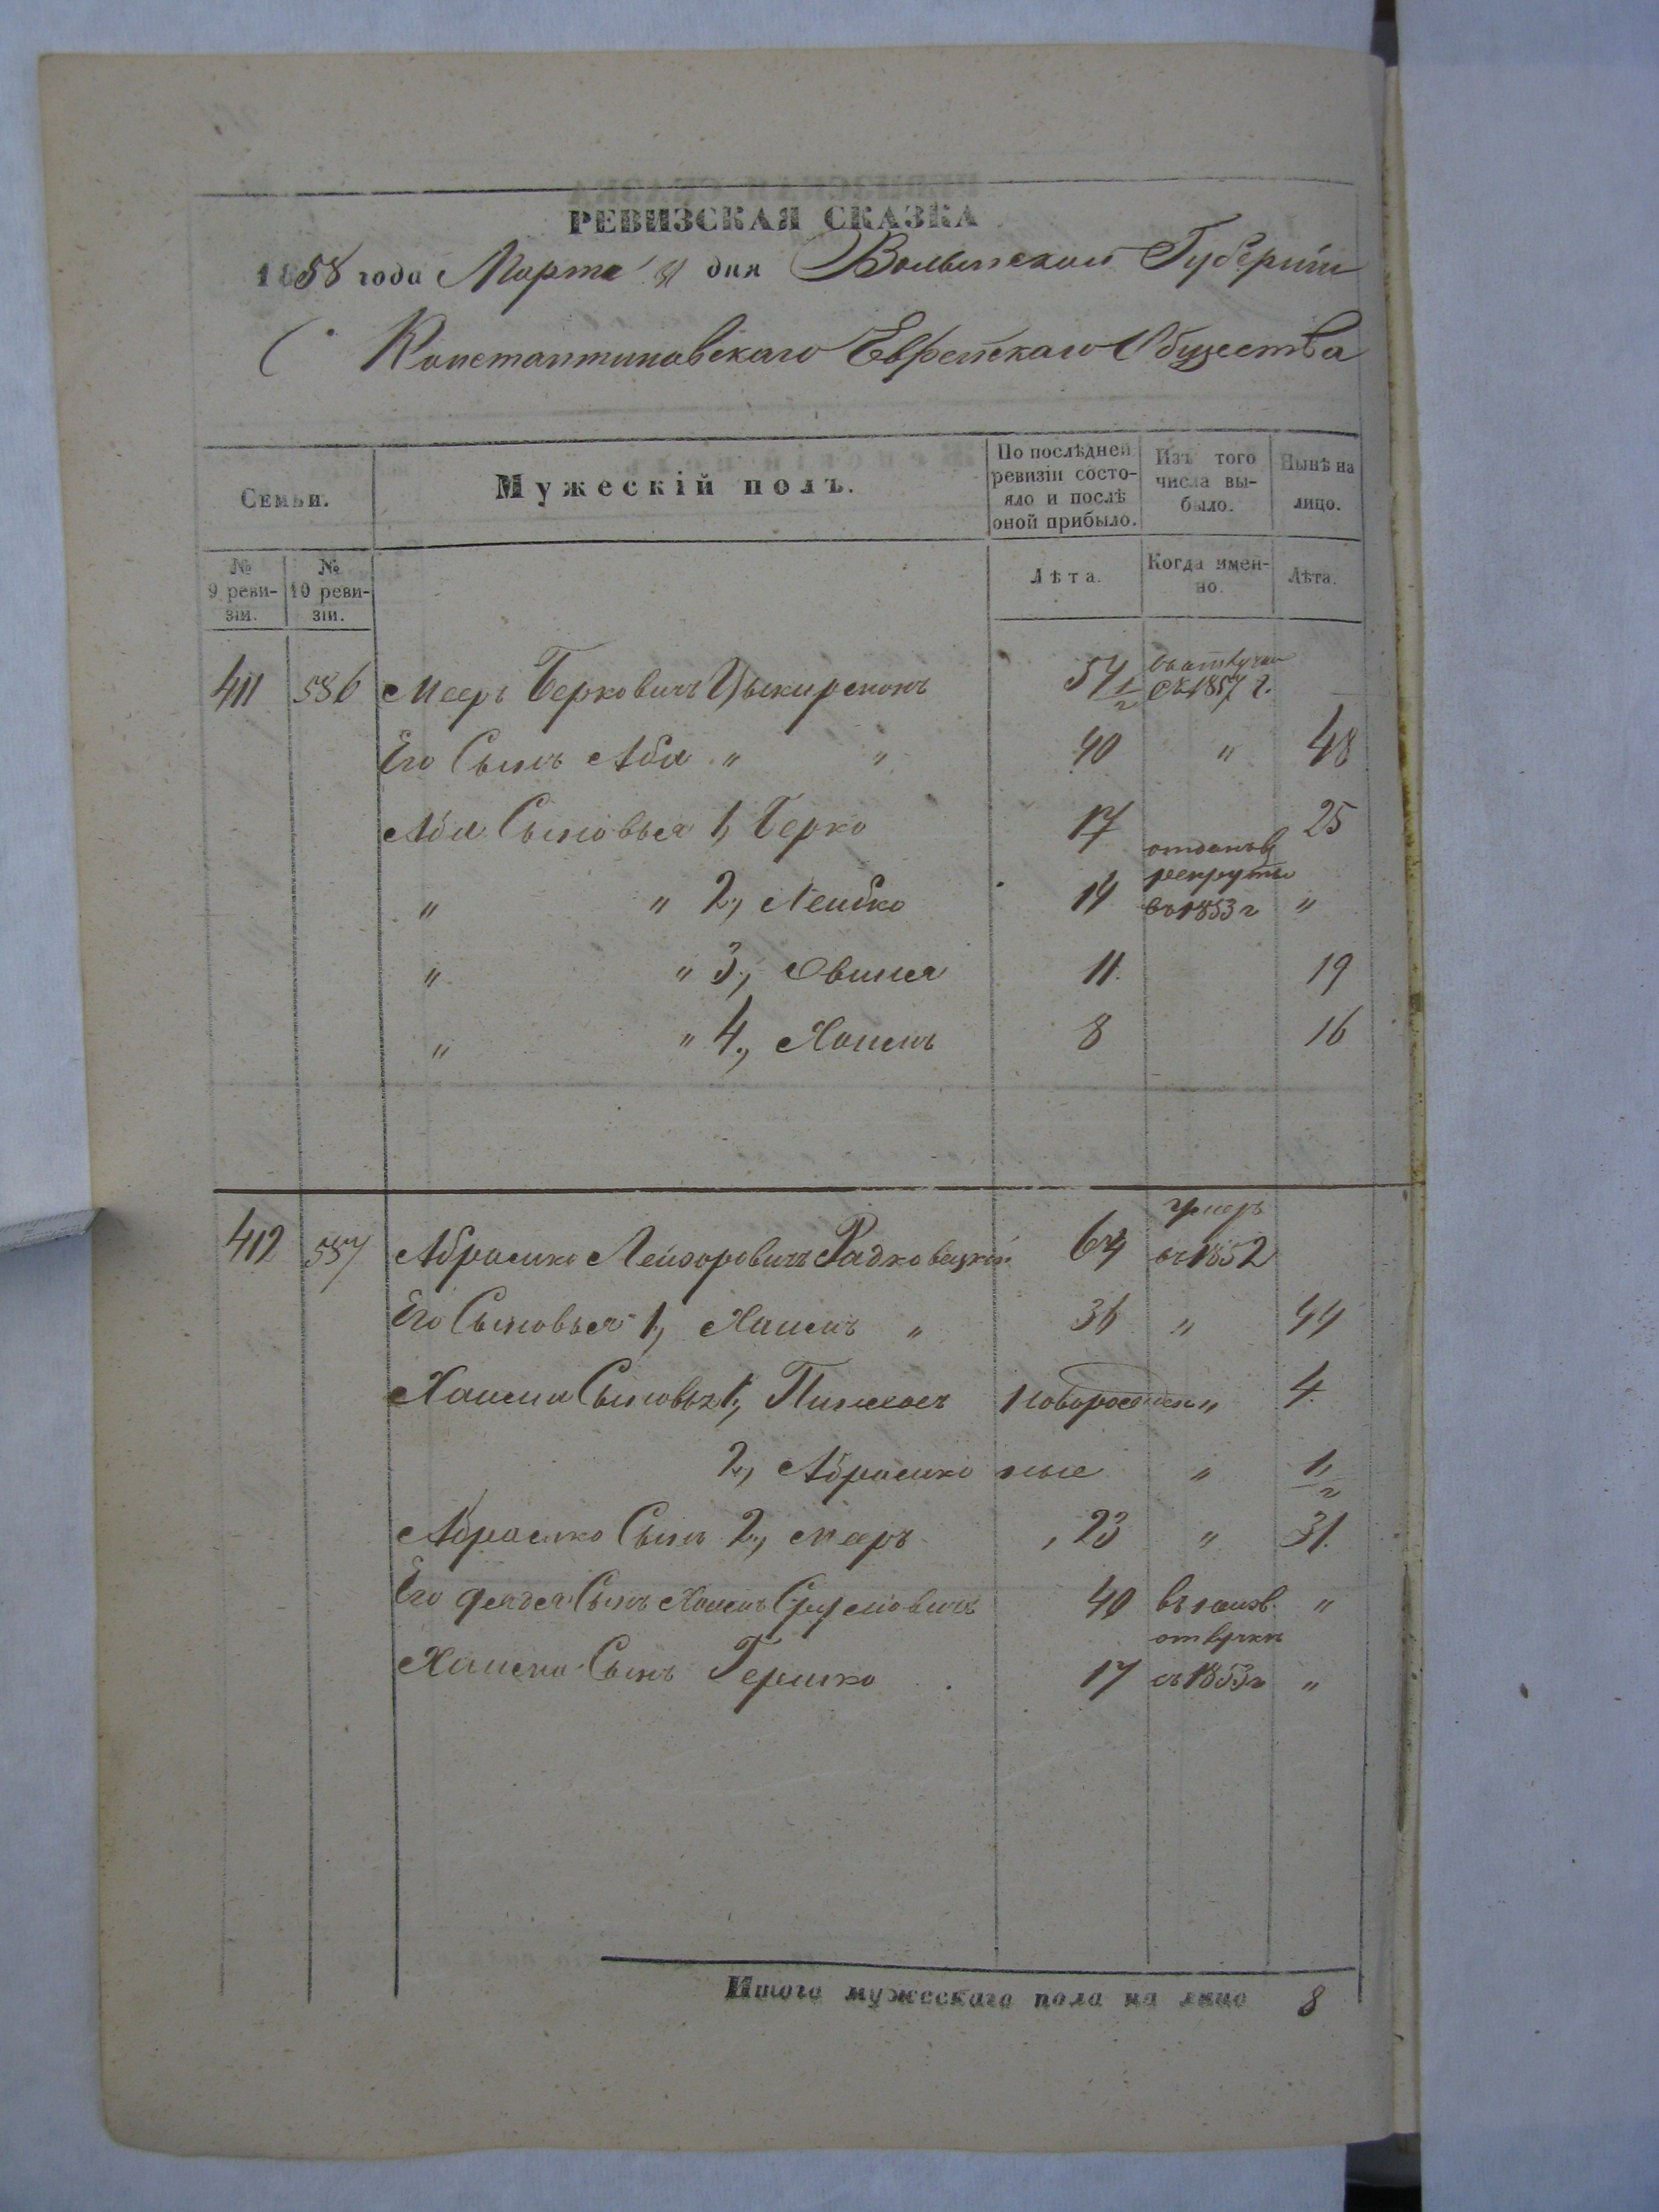 РЕВИЗСКАЯ СКАЗКА
1858 года Марта дня Волынской Губернiи
Константиновскаго Еврейскаго Общества
Семьи. Мужескiй полъ. По послѣдней ревизiи состо-яло и послѣ оной прибыло. Изъ того числа вы-было. Нынѣ на лицо.
№ 9 реви-зiи. № 10 реви-зiи. Лѣта. Когда имен-но. Лѣта.
411 586 Мееръ Берковичъ 54 1/2 въ отлучки съ 1857 г. —
Его Сынъ Аба " " 40 " 48
Аба Сыновья 1, Берко 17 25
" " 2, Лейбко 14 отданъ в рекруты въ 1853 г "
" " 3, Овшея 11 19
" " 4, Хаимъ 8 16
412 587 Абрамко Лейзоровичъ Радковецкiй 64 умеръ въ 1852
Его Сыновья 1, Хаимъ " 36 " 44
Хаима Сыновья 1, Пинхасъ новорожден " 4
2, Абрамко ные " 1/2
Абрамко Сынъ 2, Мееръ 23 " 31
Его дядя Сынъ Хаимъ Сруловичъ 40 въ неизв. "
отлучкѣ
Хаима Сынъ Гершко 17 съ 1853 г "
Итого мужескаго пола на лицо 8